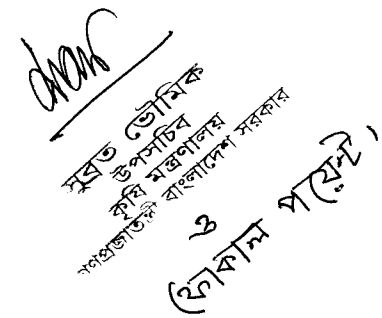 সুব্রত ভৌমিক
উপসচিব
কৃষি মন্ত্রণালয়
গণপ্রজাতন্ত্রী বাংলাদেশ সরকার
ও
ফোকাল পয়েন্ট